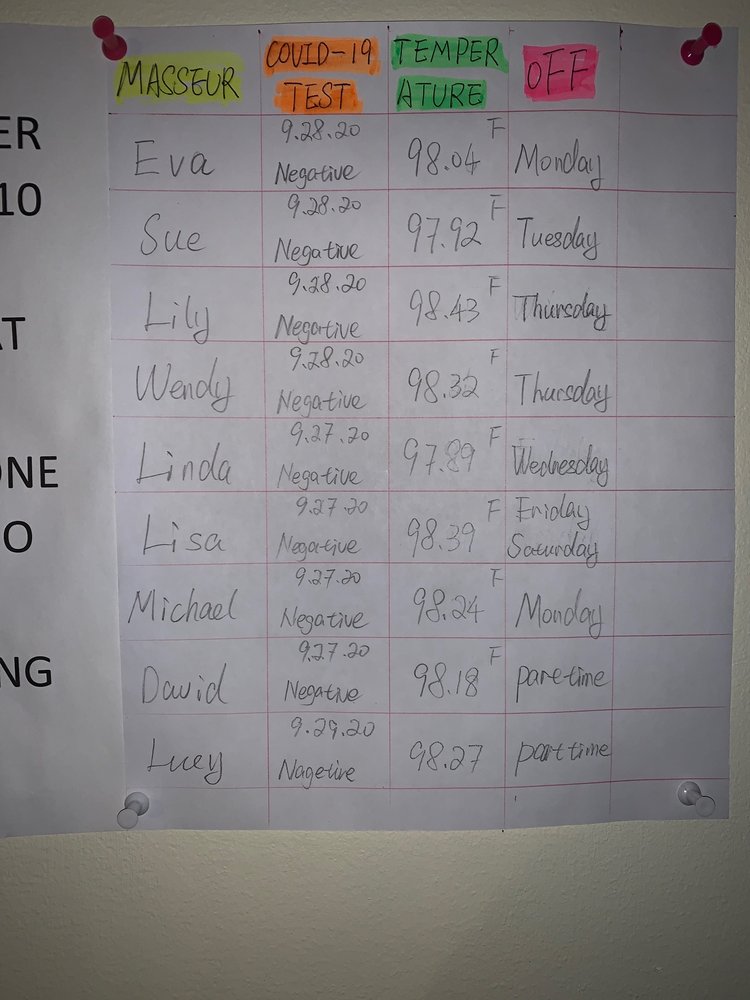 ER
10
AT
ONE
O
NG
MASSEUR COVID-19 TEST TEMPER ATURE OFF
Eva 9.28.20 Negative 98.04 F Monday
Sue 9.28.20 Negative 97.92 F Tuesday
Lily 9.28.20 Negative 98.43 F Thursday
Wendy 9.28.20 Negative 98.32 F Thursday
Linda 9.27.20 Negative 97.89 F Wednesday
Lisa 9.27.20 Negative 98.39 F Friday Saturday
Michael 9.27.20 Negative 98.24 F Monday
David 9.27.20 Negative 98.18 F part-time
Lucy 9.29.20 Nagetive 98.27 part time